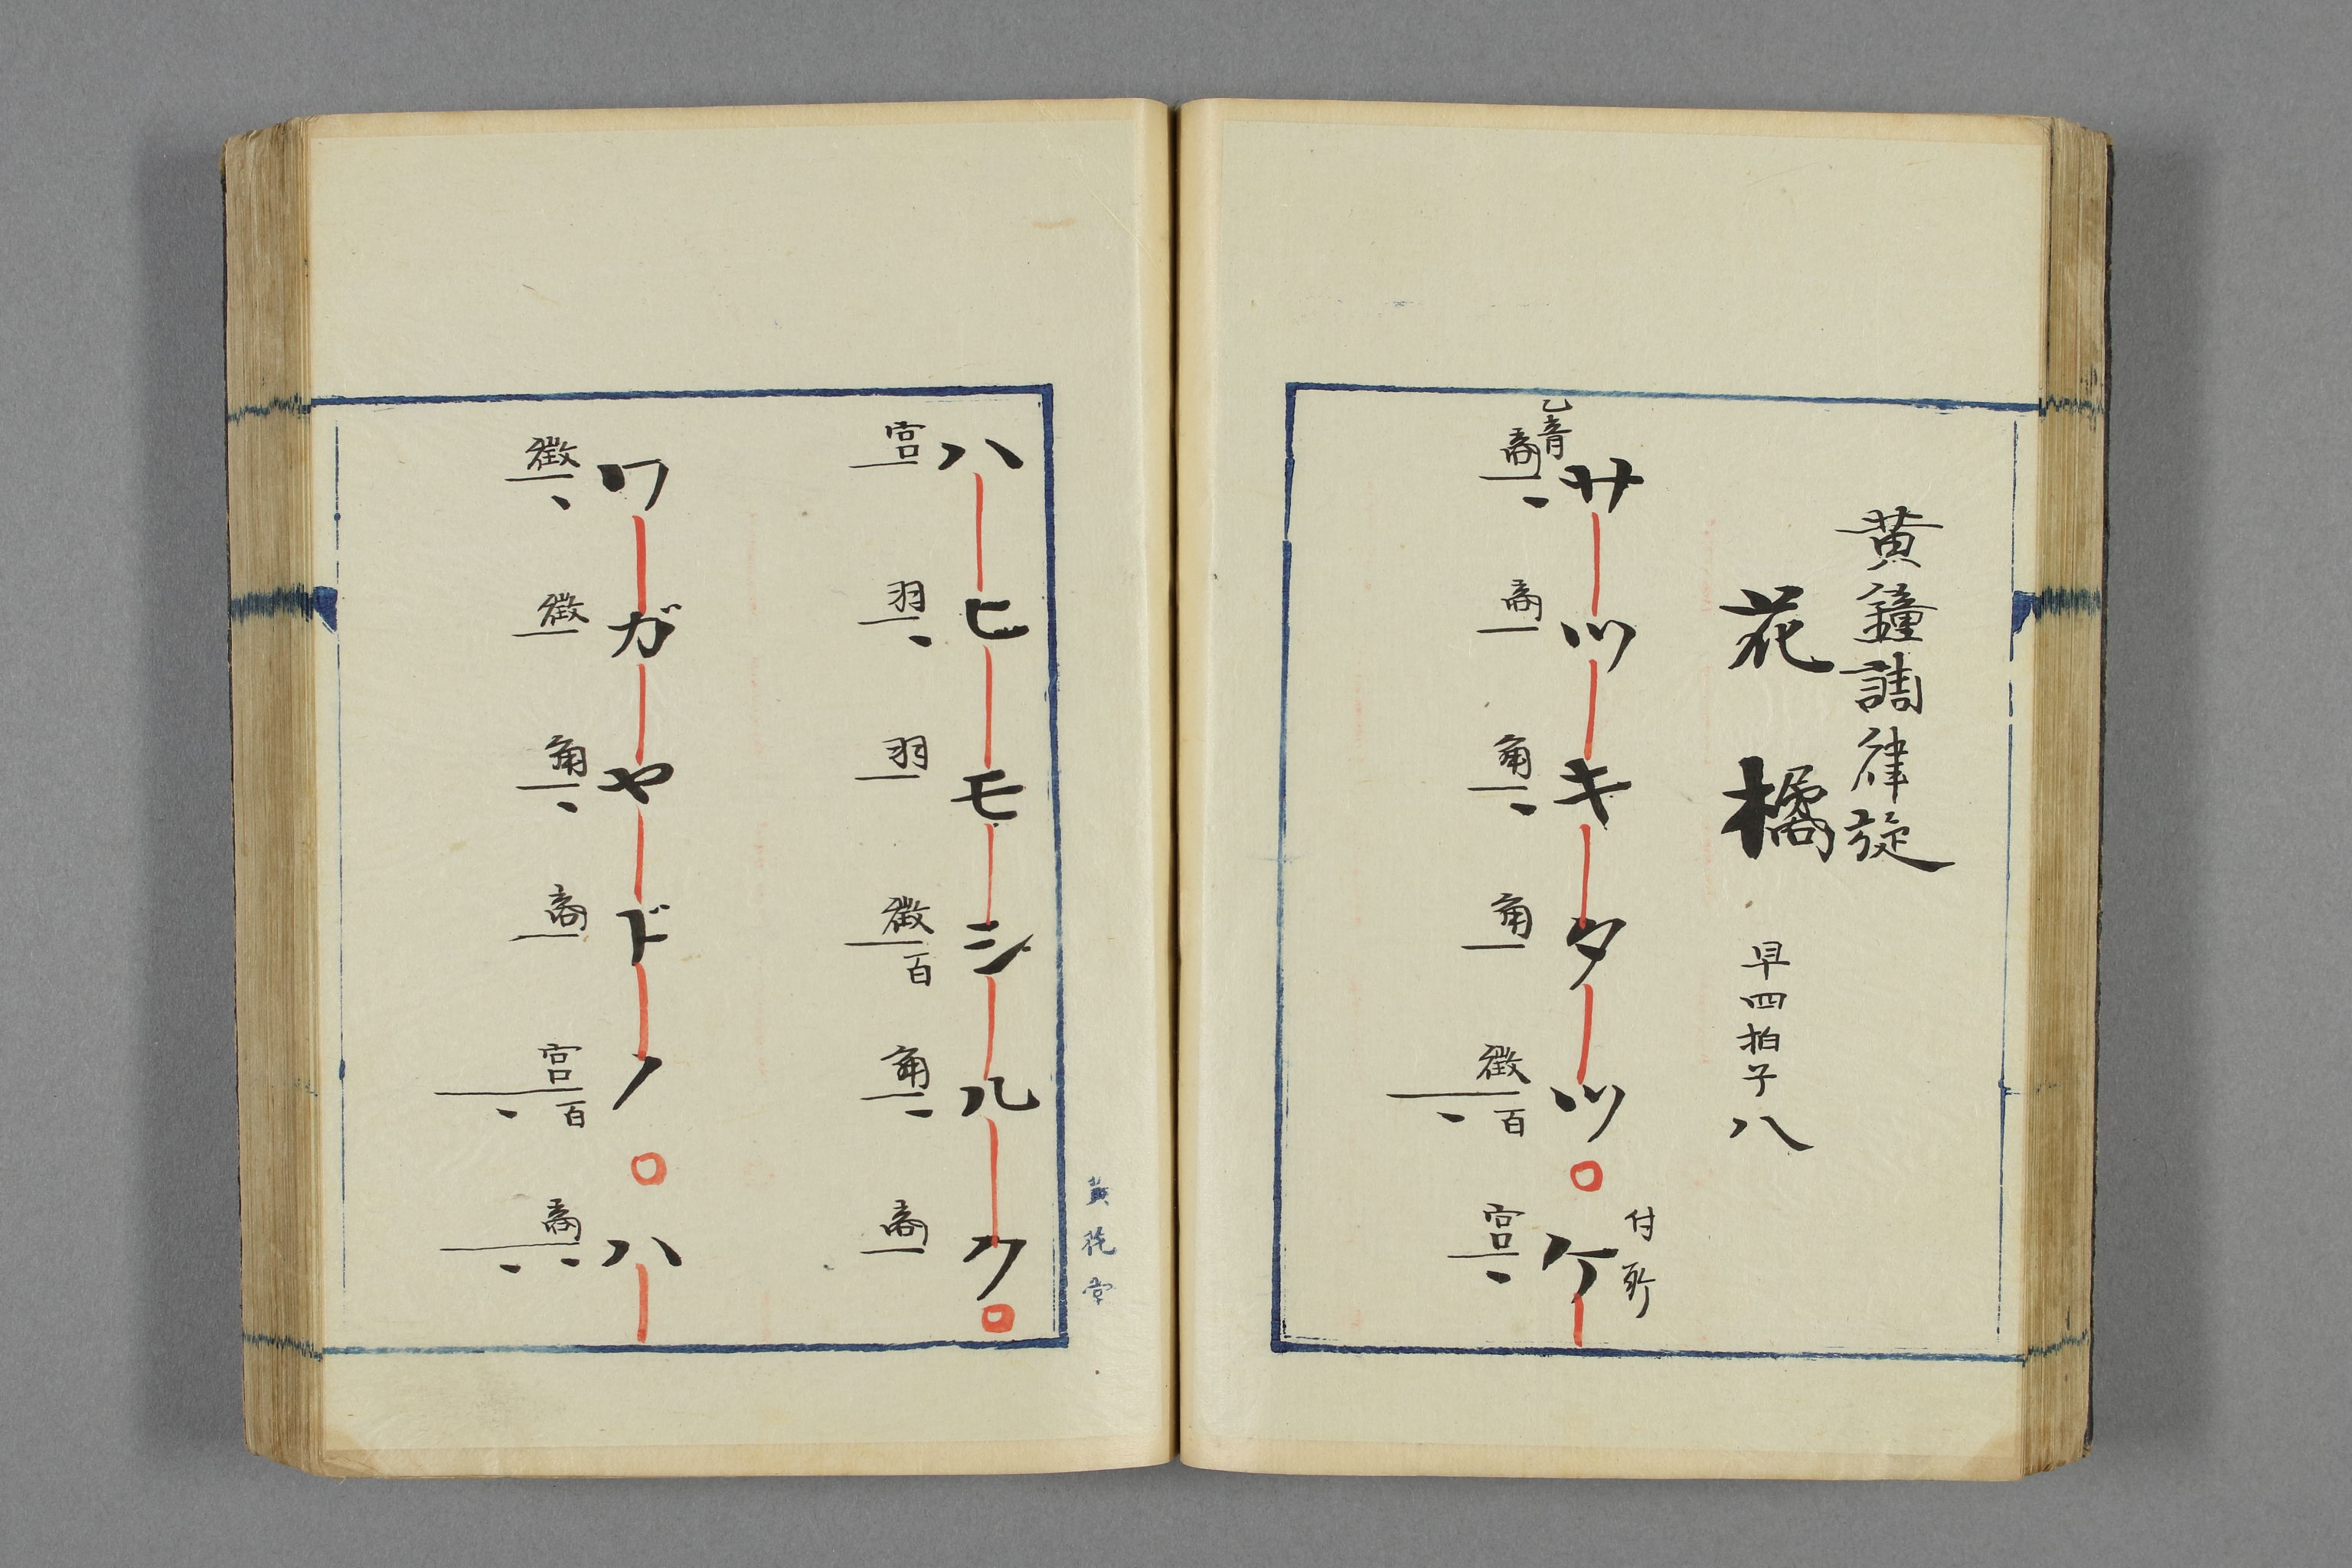 黄鐘調律旋
花橘 早四拍子八
サツキタツ ケ
付所
乙音
商 商 角 角 徴 百 宮
黄花堂
ハヒモシルク
宮 羽 羽 徴 百 角 商
ワガヤドノ ハ
徴 徴 角 商 宮 百 商